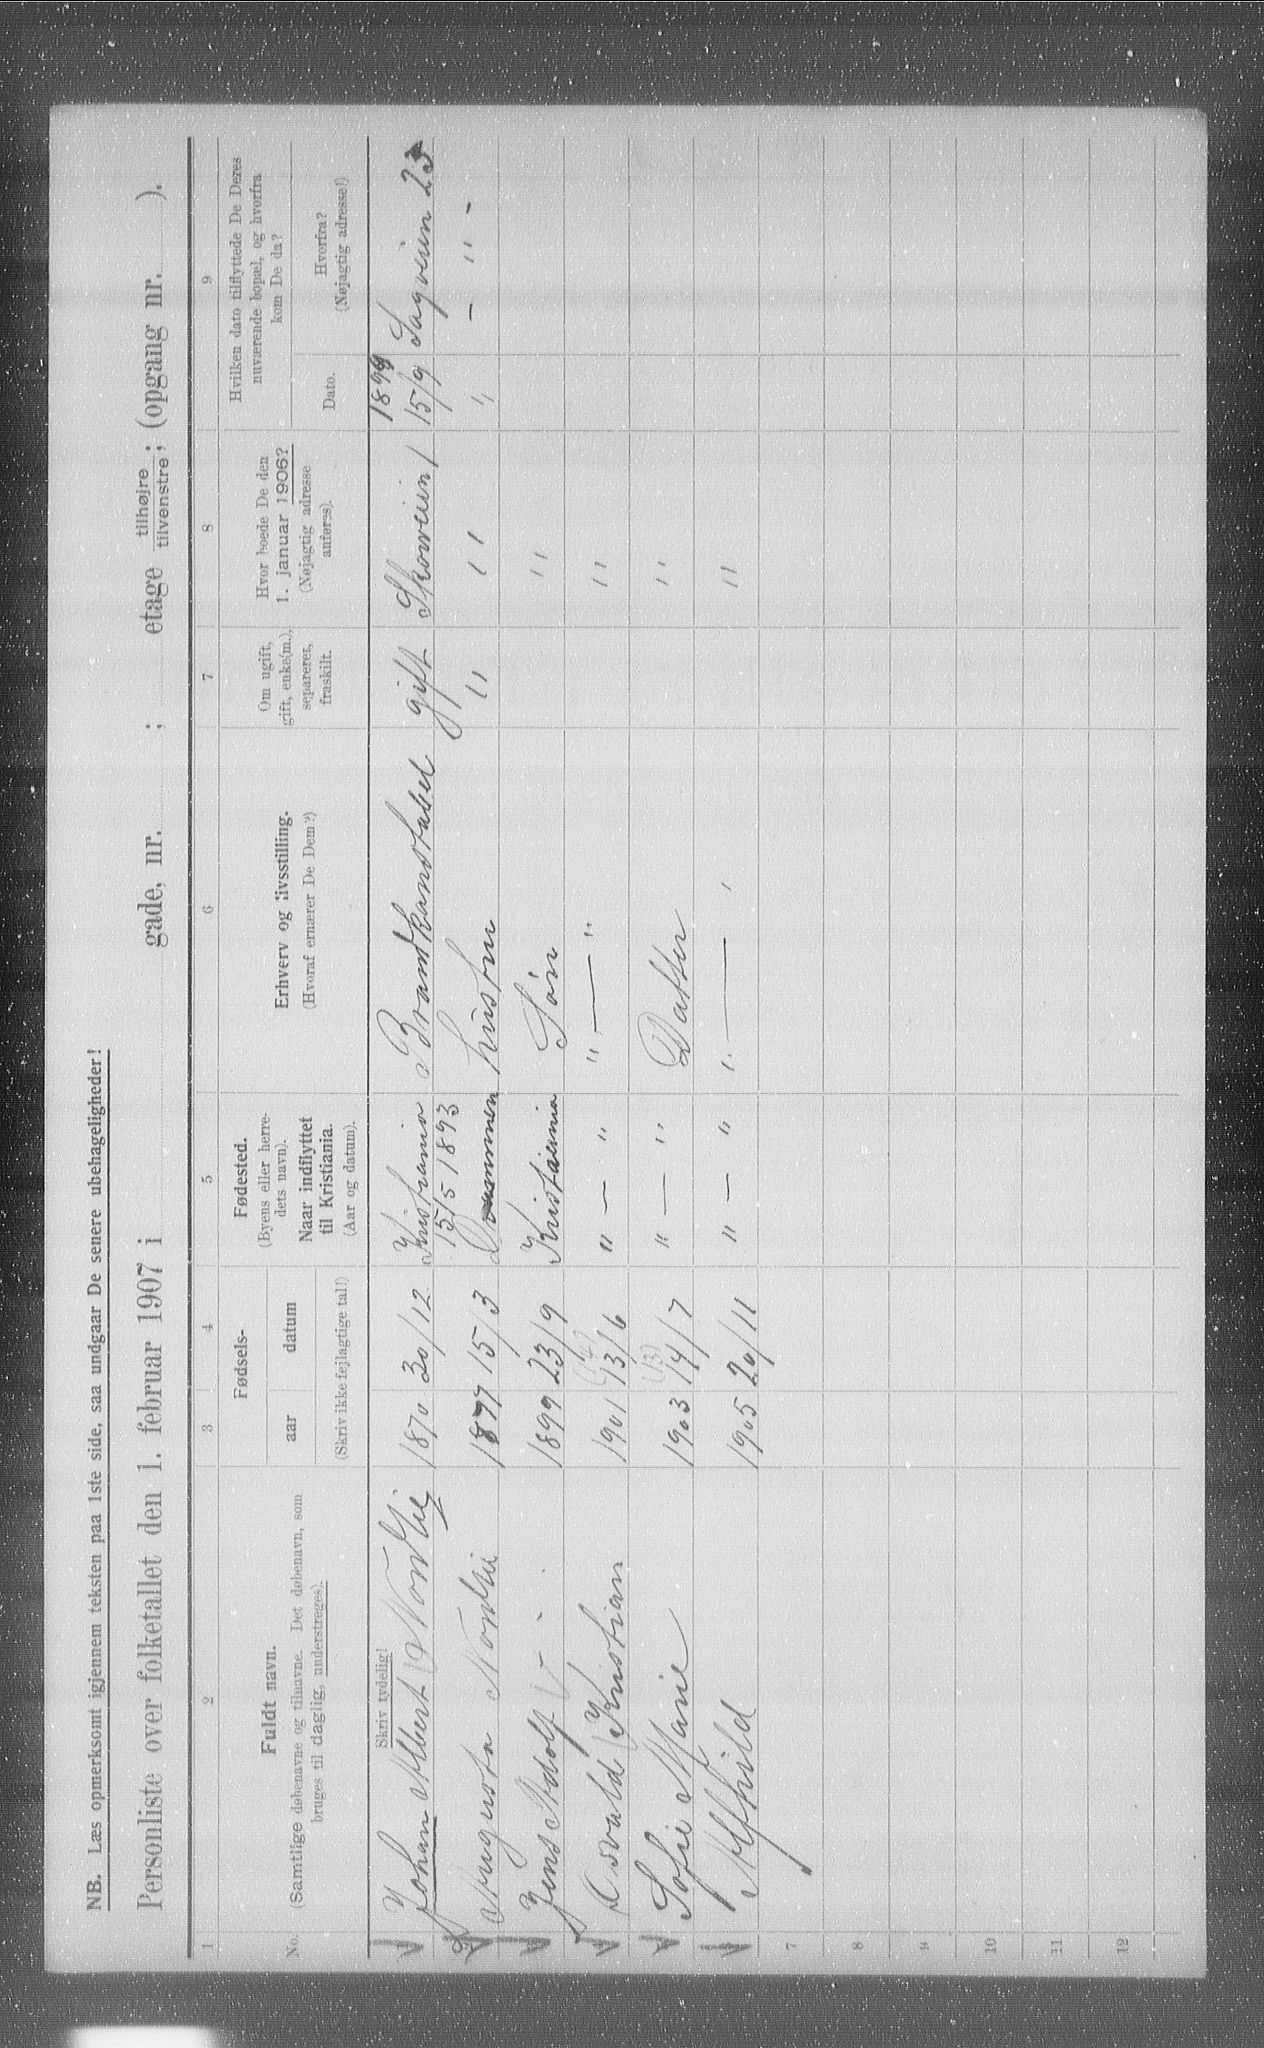 NB. Læs opmerksomt igjennem teksten paa 1ste side, saa undgaar De senere ubehageligheder!
Personliste over folketallet den 1. februar 1907 i gade, nr. ; etage tilhøjre tilvenstre; (opgang nr. ).
1 2 3 4 5 6 7 8 9
No.
Fuldt navn.
(Samtlige døbenavne og tilnavne. Det døbenavn, som
bruges til daglig, understreges).
Skriv tydelig!
Fødsels-
aar datum
(Skriv ikke fejlagtige tal!)
Fødested.
(Byens eller herre-
dets navn).
Naar indflyttet
til Kristiania.
(Aar og datum).
Erhverv og livsstilling.
(Hvoraf ernærer De Dem?)
Om ugift,
gift, enke(m.),
separeret,
fraskilt.
Hvor boede De den
1. januar 1906?
(Nøjagtig adresse
anføres).
Hvilken dato tilflyttede De Deres
nuværende bopæl, og hvorfra
kom De da?
Dato.
Hvorfra?
(Nøjagtig adresse!)
Johan Albert Nordlie 1870 30/12 Kristiania Brandkonstabel gift 1899 15/9 Sagveien 23
15/5 1893
Augusta Nordlie 1877 15/3 Drammen hustru " " " — " -
Jens Adolf 1899 23/9 Kristiania Søn "
Osvald Kristian 1901 13/6 " — " " — " "
Sofie Marie 1903 14/7 (13) " — " Datter "
Alfhild 1905 20/11 " — " " — " "
7
8
9
10
11
12